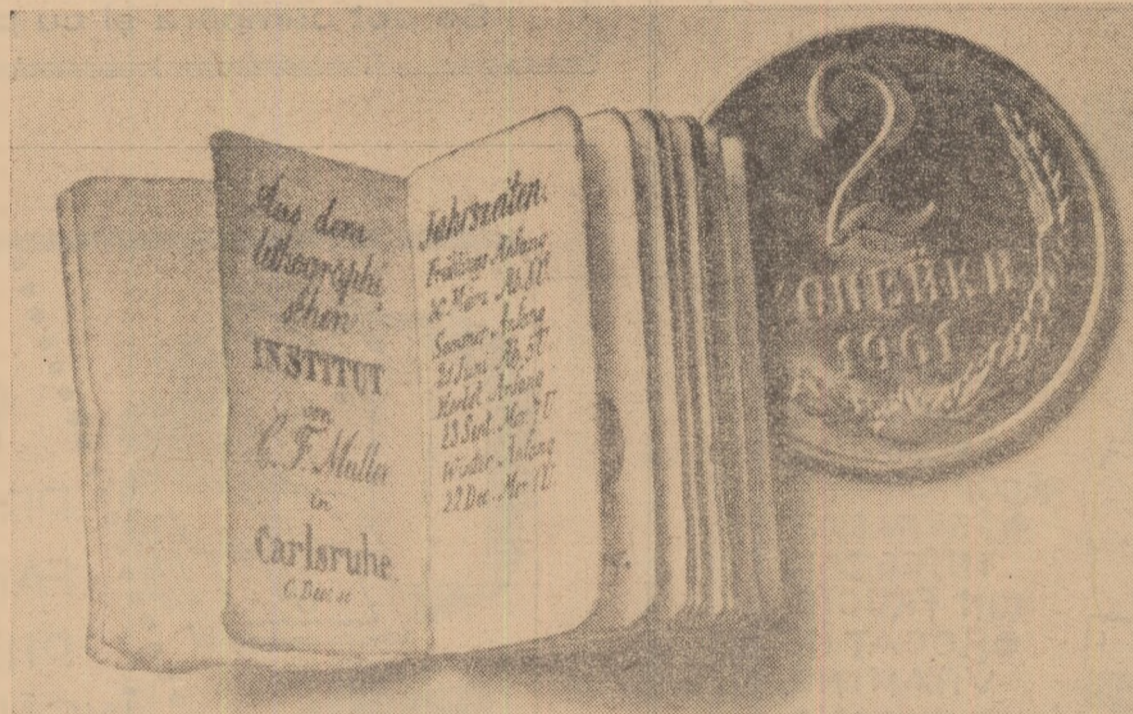 Aus dem
lithographi
schen
INSTITUT
von
C. F. Müller
in
Carlsruhe.
Jahrszeiten.
Frühlings Anfang
20 März Ab.
Sommer Anfang
21 Juni Ab. 5 U.
Herbst Anfang
23 Sept. Mor. 7 U
Winter Anfang
22 Dec. Mor. 1 U.
2
КОПЕЙКИ
1961